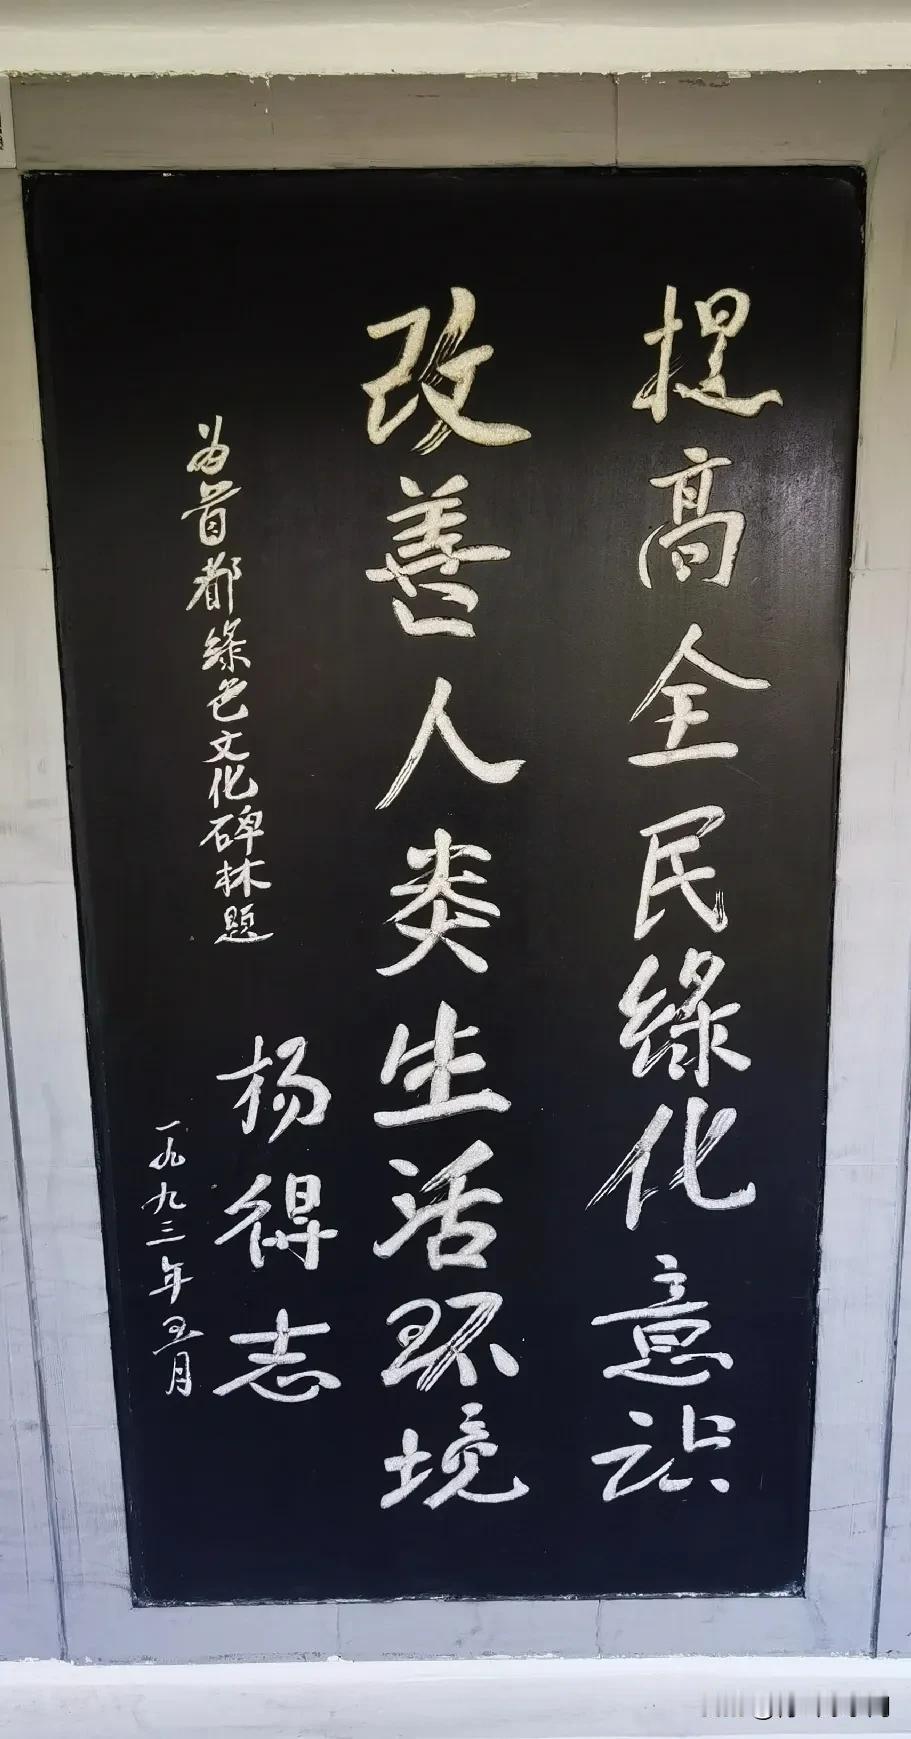 提高全民綠化意识
改善人类生活环境
为首都綠色文化碑林题
杨得志
一九九三年五月